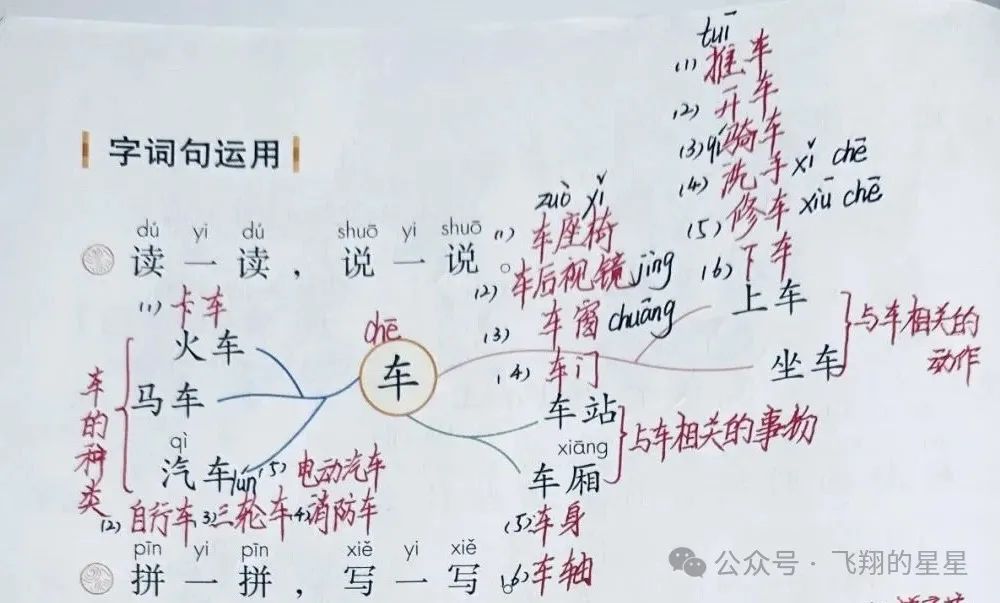 字词句运用
dú yi dú shuō yi shuō
读一读，说一说。
tuī
(1) 推车
(2) 开车
(3) qí 骑车
(4) 洗手 xǐ chē
(5) 修车 xiū chē
(6) 下车
上车
坐车
与车相关的
动作
zuò yǐ
(1) 车座椅
(2) 车后视镜 jìng
(3) 车窗 chuāng
(4) 车门
车站
xiāng
车厢
与车相关的事物
(5) 车身
(6) 车轴
chē
车
(1) 卡车
火车
马车
qì
汽车
车的种类
(2) 自行车 (3) 三轮车 lún (4) 消防车
(5) 电动汽车
pīn yi pīn xiě yi xiě
拼一拼，写一写。
公众号·飞翔的星星